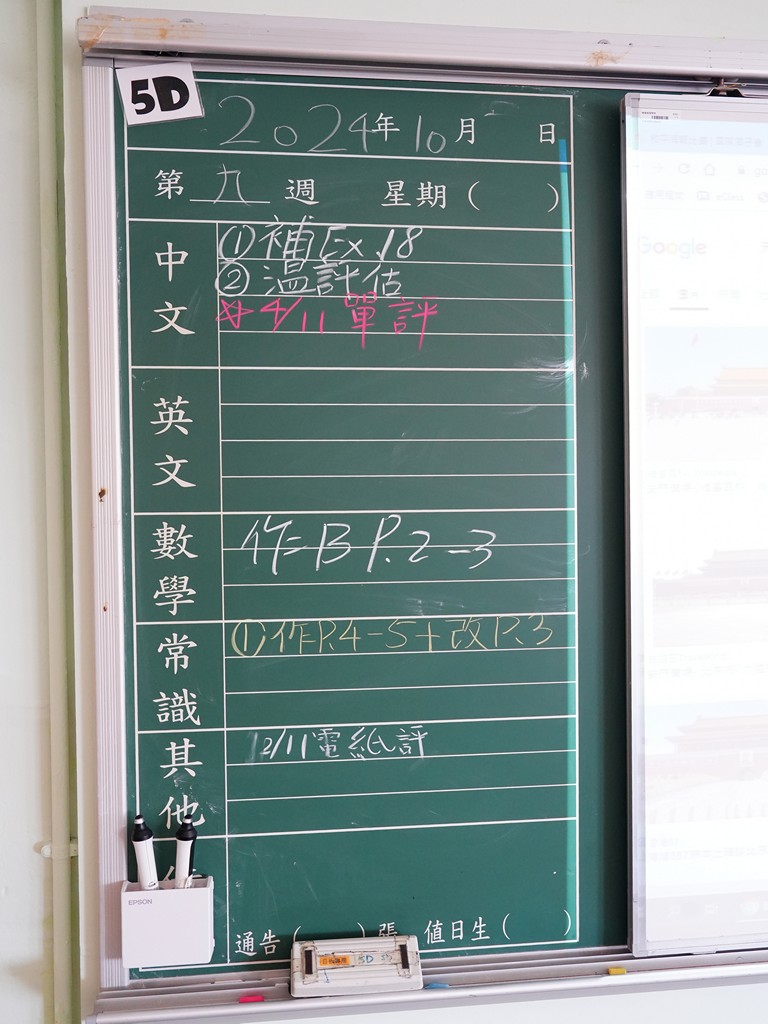 5D
2024年10月 日
第 九 週 星期( )
中文
①補Ex.18
②温評估
☆4/11單評
英文
數學
作=B P.2-3
常識
①作P.4-5+改P.3
其他
12/11電紙評
EPSON
通告( )張 值日生( )
5D
Google